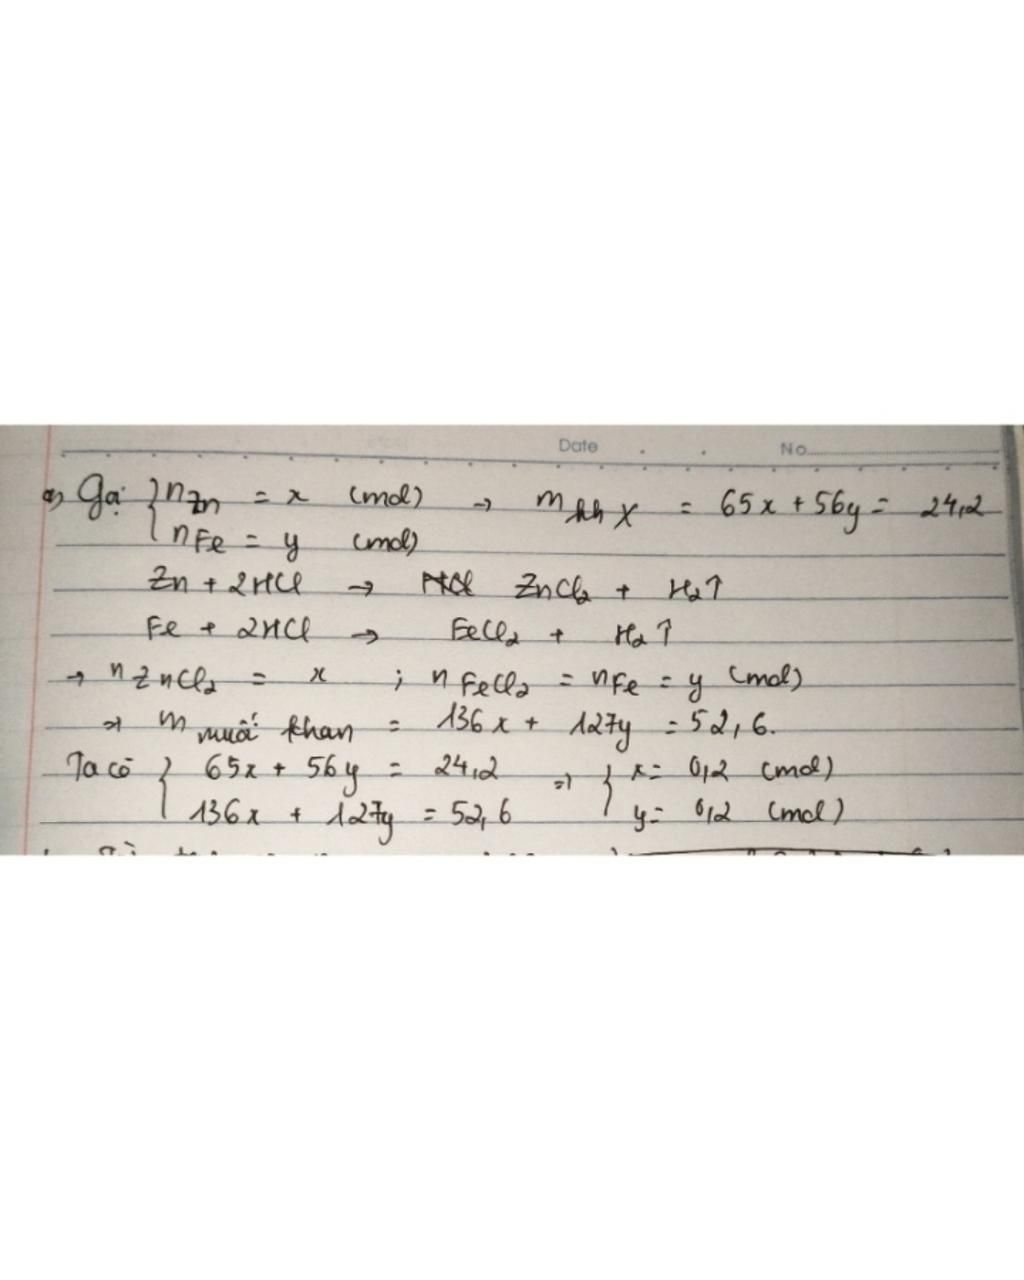 Date No
a) Gọi { nZn = x (mol) → mhh X = 65x + 56y = 24,2
nFe = y (mol)
Zn + 2HCl → ZnCl2 + H2↑
Fe + 2HCl → FeCl2 + H2↑
→ nZnCl2 = x ; nFeCl2 = nFe = y (mol)
→ m muối khan = 136x + 127y = 52,6.
Ta có { 65x + 56y = 24,2 => { x = 0,2 (mol)
136x + 127y = 52,6 y = 0,2 (mol)